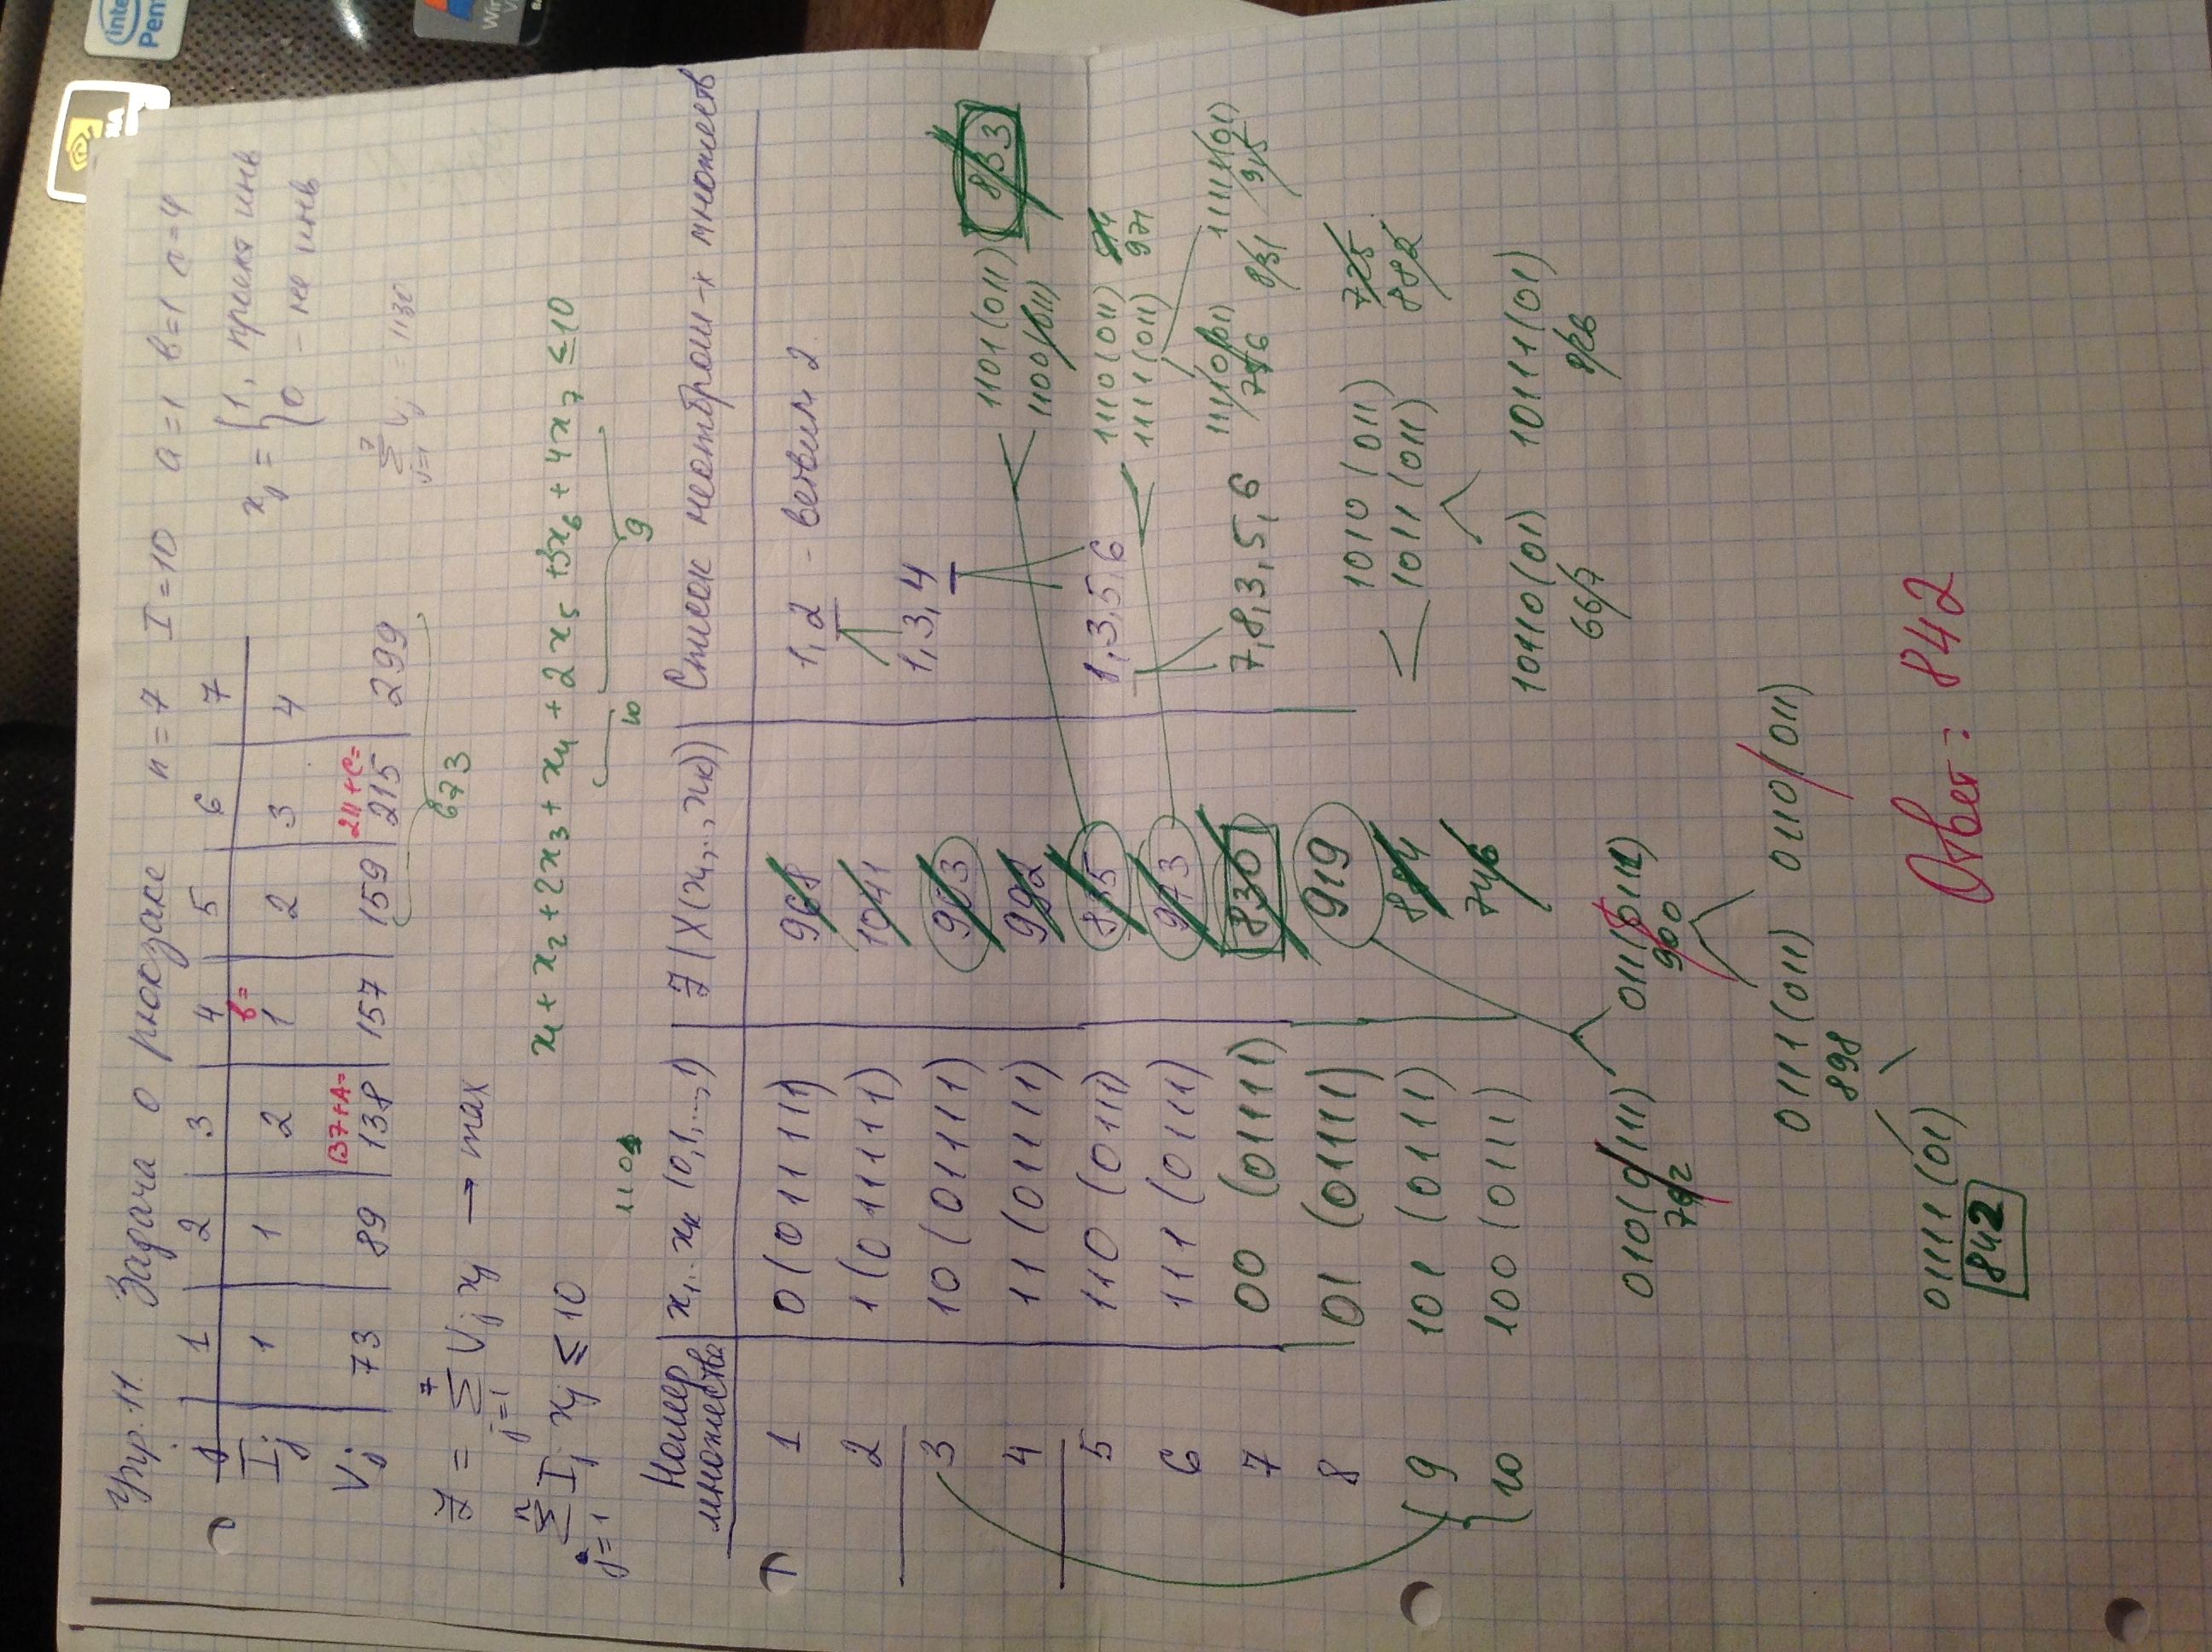 Упр. 11. Задача о рюкзаке n=7 I=10 a=1 b=1 c=4
j 1 2 3 4 5 6 7
b=
I_j 1 1 2 1 2 3 4
137+A= 211+C=
V_j 73 89 138 157 159 215 299
673
x_j = {1, проект инв
0 - не инв
Z = Σ_{j=1}^{7} V_j x_j → max
Σ_{j=1}^{7} V_j = 1130
Σ_{j=1}^{n} I_j x_j ≤ 10
x_1 + x_2 + 2x_3 + x_4 + 2x_5 + 3x_6 + 4x_7 ≤ 10
10 9
Номер множества x_1..x_k (0,1,..,1) Z(X(x_1,..,x_k)) Список неотбром-х множеств
1 0(011111) 968 1,2 - ветвим 2
2 1(011111) 1041 1,3,4
3 10(01111) 903
4 11(01111) 992
5 110(0111) 835 1,3,5,6
6 111(0111) 973
7 00(01111) 830 7,8,3,5,6
8 01(01111) 919
9 101(0111) 884
10 100(0111) 746
1101(011) 833
1100(011)
1110(011)
1111(011) 971
11110(01) 11111(01)
756 931 915
1010(011) 725
1011(011) 882
10110(01) 10111(01)
667 826
010(0111) 011(0111)
792 900
01111(011) 0110(011)
898
011111(01)
842
Ответ: 842